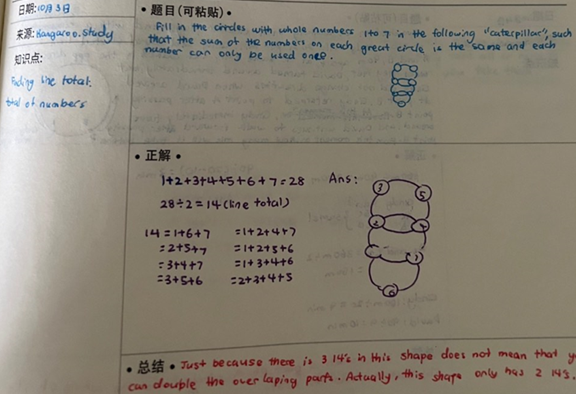 日期:10月3日
来源:Kangaroo.study
知识点:
Finding line total:
total of numbers
• 题目(可粘贴) •
Fill in the circles with whole numbers 1 to 7 in the following "caterpillar", such
that the sum of the numbers on each great circle is the same and each
number can only be used once.
• 正解 •
1+2+3+4+5+6+7=28
28÷2=14(line total)
14=1+6+7
=2+5+7
=3+4+7
=3+5+6
=1+2+4+7
=1+2+5+6
=1+3+4+6
=2+3+4+5
Ans:
5
2
4
• 总结 • Just because there is 3 14's in this shape does not mean that y
can double the overlaping parts. Actually, this shape only has 2 14's.